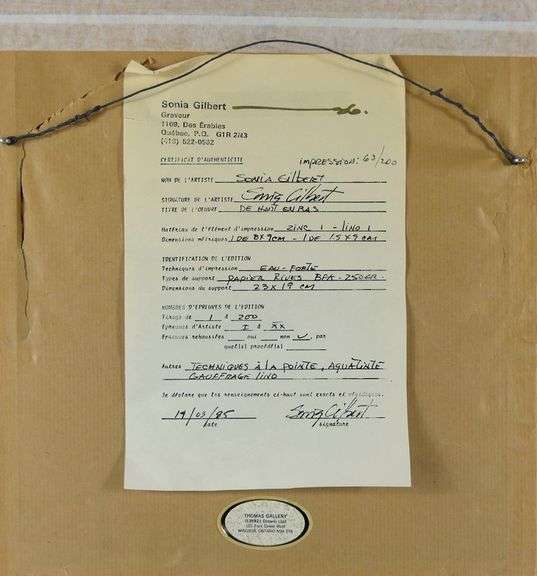 Sonia Gilbert
Graveur
1109, Des Érables
Québec, P.Q. G1R 2N3
(418) 522-0532
CERTIFICAT D'AUTHENTICITE IMPRESSION: 63/200
NOM DE L'ARTISTE SONIA GILBERT
SIGNATURE DE L'ARTISTE Sonia Gilbert
TITRE DE L'OEUVRE DE HAUT EN BAS
Matériau de l'élément d'impression ZINC 1 - LINO 1
Dimensions métriques 1 DE 8X9CM - 1 DE 15X9 CM
IDENTIFICATION DE L'EDITION
Techniques d'impression EAU-FORTE
Types de support PAPIER RIVES BFK - 250GR.
Dimensions du support 23 X 19 CM
NOMBRES D'EPREUVES DE L'EDITION
Tirage de 1 à 200
Epreuves d'Artiste I à XX
Epreuves rehaussées oui non ✓, par
quel(s) procédé(s)
Autres TECHNIQUES À LA POINTE, AQUATINTE
GAUFFRAGE LINO
Je déclare que les renseignements ci-haut sont exacts et
19/03/85 Sonia Gilbert
date signature
THOMAS GALLERY
WINDSOR, ONTARIO